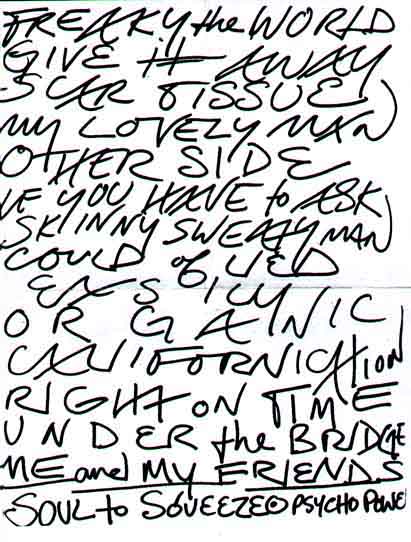 FREAKY the WORLD
GIVE IT AWAY
SCAR TISSUE
MY LOVELY MAN
OTHER SIDE
IF YOU HAVE to ASK
SKINNY SWEATY MAN
COULD of LIED
EASILY
ORGANIC
CALIFORNICATION
RIGHT ON TIME
UNDER the BRIDGE
ME and MY FRIENDS
SOUL to SQUEEZE PSYCHO POWE